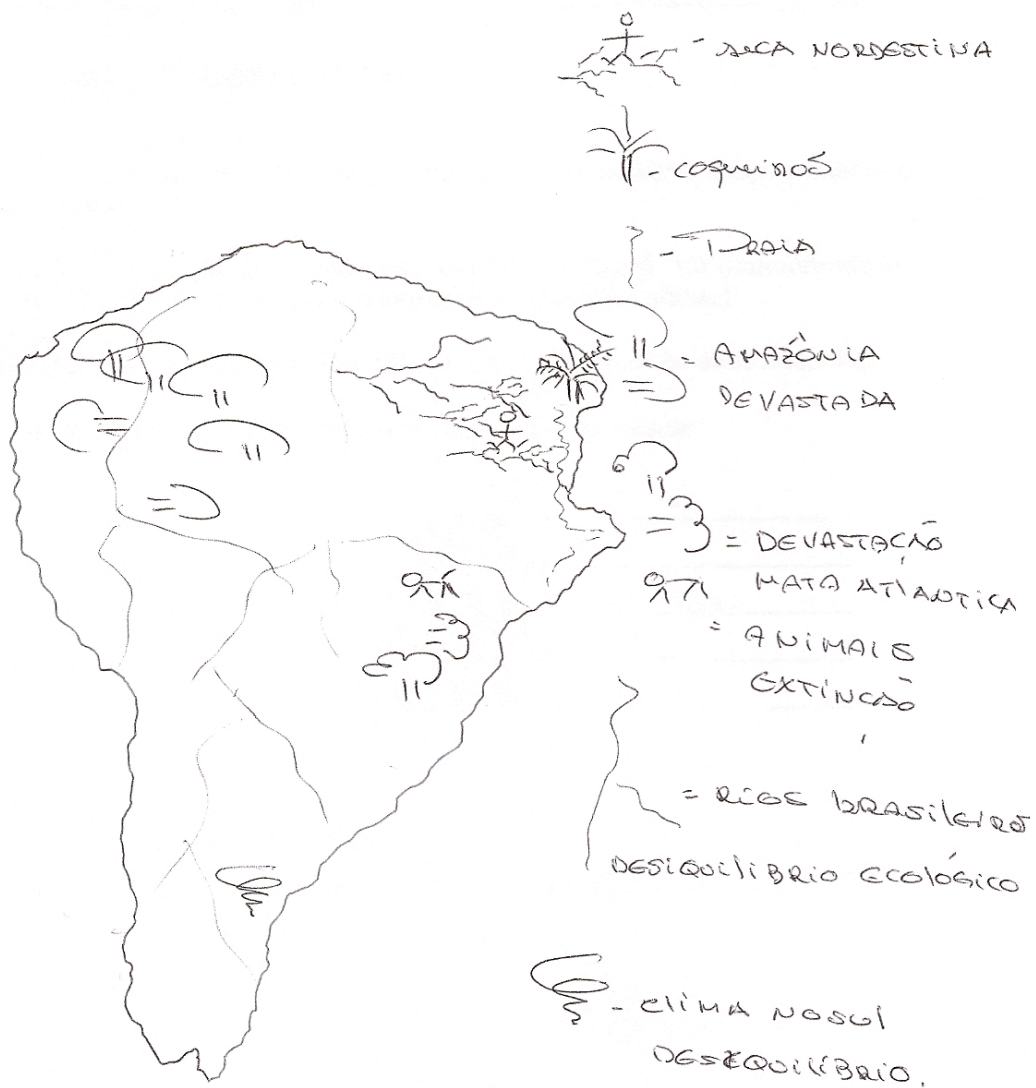 - SECA NORDESTINA
- coqueiros
- PRAIA
= AMAZÔNIA
DEVASTADA
= DEVASTAÇÃO
MATA ATLANTICA
= ANIMAIS
EXTINÇÃO
= RIOS brasileiros
DESIQUILIBRIO ECOLÓGICO
- CLIMA NO SUL
DESEQUILÍBRIO.